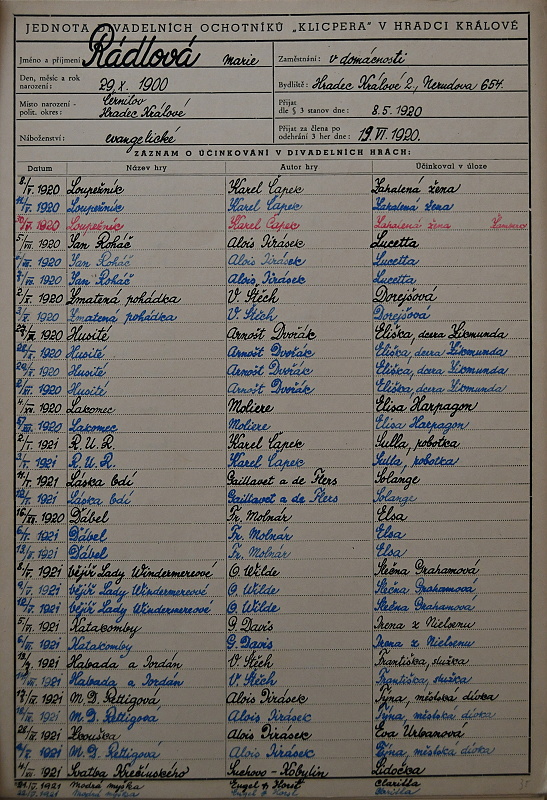 JEDNOTA DIVADELNÍCH OCHOTNÍKŮ „KLICPERA" V HRADCI KRÁLOVÉ
Jméno a příjmení Rádlová Marie
Zaměstnání: v domácnosti
Den, měsíc a rok narození: 29. X. 1900
Bydliště: Hradec Králové 2., Nerudova 654.
Místo narození - polit. okres: Černilov Hradec Králové
Přijat dle § 3 stanov dne: 8.5.1920
Náboženství: evangelické
Přijat za člena po odehrání 3 her dne: 19. VI. 1920.
ZÁZNAM O ÚČINKOVÁNÍ V DIVADELNÍCH HRÁCH:
Datum Název hry Autor hry Účinkoval v úloze
1920 Loupežník Karel Čapek Zahalená žena
1920 Loupežník Karel Čapek Zahalená žena
1920 Loupežník Karel Čapek Zahalená žena
1920 Jan Roháč Alois Jirásek Lucetta
1920 Jan Roháč Alois Jirásek Lucetta
1920 Jan Roháč Alois Jirásek Lucetta
1920 Zmatená pohádka V. Štěch Dorejšová
1920 Zmatená pohádka V. Štěch Dorejšová
1920 Husité Arnošt Dvořák Eliška, dcera Zikmunda
1920 Husité Arnošt Dvořák Eliška, dcera Zikmunda
1920 Husité Arnošt Dvořák Eliška, dcera Zikmunda
1920 Husité Arnošt Dvořák Eliška, dcera Zikmunda
1920 Lakomec Moliere Elisa Harpagon
1920 Lakomec Moliere Elisa Harpagon
1921 R. U. R. Karel Čapek Sulla, robotka
1921 R. U. R. Karel Čapek Sulla, robotka
1921 Láska bdí Gaillavet a de Flers Solange
1921 Láska bdí Gaillavet a de Flers Solange
1920 Ďábel Fr. Molnár Elsa
1921 Ďábel Fr. Molnár Elsa
1921 Ďábel Fr. Molnár Elsa
1921 Vějíř Lady Windermereové O. Wilde Slečna Grahamová
1921 Vějíř Lady Windermereové O. Wilde Slečna Grahamová
1921 Vějíř Lady Windermereové O. Wilde Slečna Grahamova
1921 Katakomby G. Davis Irena z Nielsenu
1921 Katakomby G. Davis Irena z Nielsenu
1921 Habada a Jordán V. Štěch Františka, služka
1921 Habada a Jordán V. Štěch Františka, služka
1921 M. D. Rettigová Alois Jirásek Týna, městská dívka
1921 M. D. Rettigová Alois Jirásek Týna, městská dívka
1921 Alois Jirásek Eva Urbanová
1921 M. D. Rettigová Alois Jirásek Týna, městská dívka
1921 Svatba Krečinského Suchovo-Kobylin Lidočka
1921 Modrá myška Engel & Horst Clarissa
1921 Modrá myška Engel & Horst